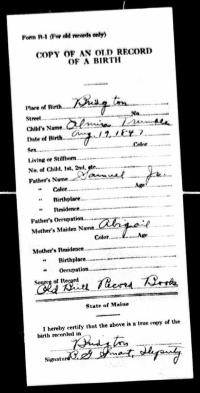 Form R-1 (For old records only)
COPY OF AN OLD RECORD
OF A BIRTH
Place of Birth Bridgton
Street No.
Child's Name Almira Trumble
Date of Birth Aug. 19, 1847
Sex Color
Living or Stillborn
No. of Child, 1st, 2nd, etc.
Father's Name Samuel Jr.
" Color Age
" Birthplace
" Residence
Father's Occupation
Mother's Maiden Name Abigail
Color Age
Mother's Residence
" Birthplace
" Occupation
Source of Record
Old Birth Record Books
State of Maine
I hereby certify that the above is a true copy of the
birth recorded in
Bridgton
Signature Deputy